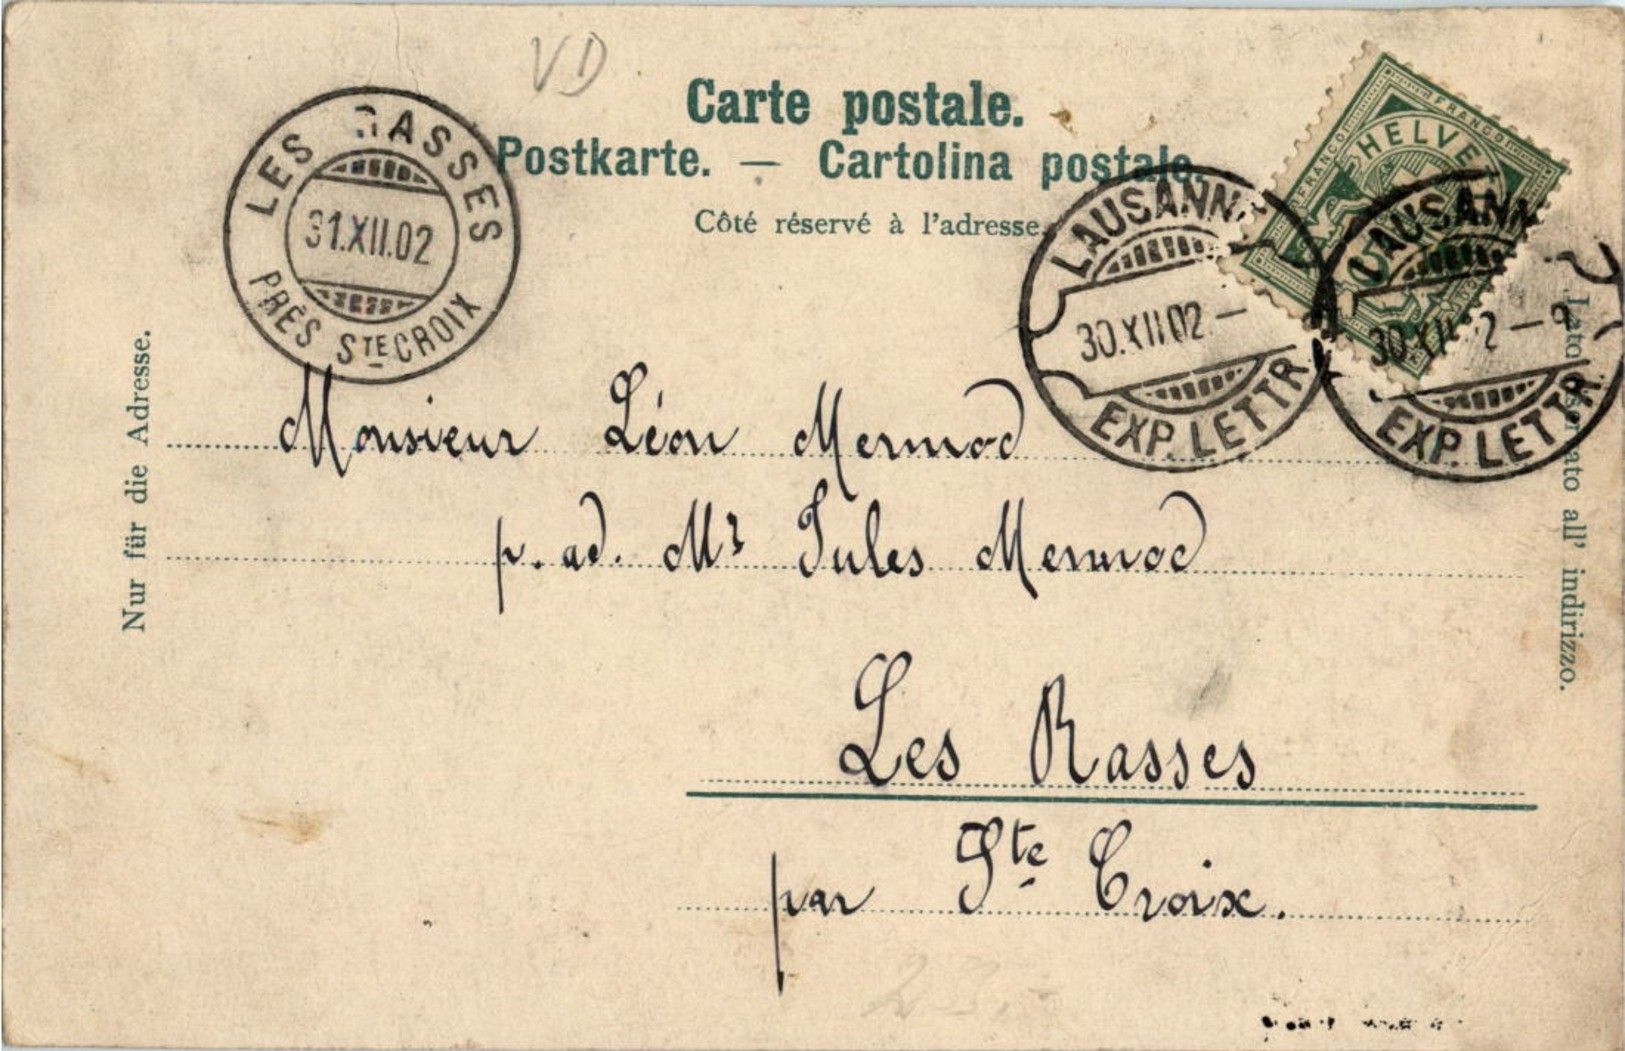 VD
Carte postale.
Postkarte. — Cartolina postale.
Côté réservé à l'adresse.
LES RASSES
31.XII.02
PRÈS STE CROIX
FRANCO FRANCO
HELVE
LAUSANN
30.XII.02.—
EXP. LETTR
LAUSANN
30.XII 2—9
EXP. LETTR
Nur für die Adresse.
Lato ser ato all' indirizzo.
Monsieur Léon Mermod
p. ad. Mr Jules Mermod
Les Rasses
par Ste Croix.